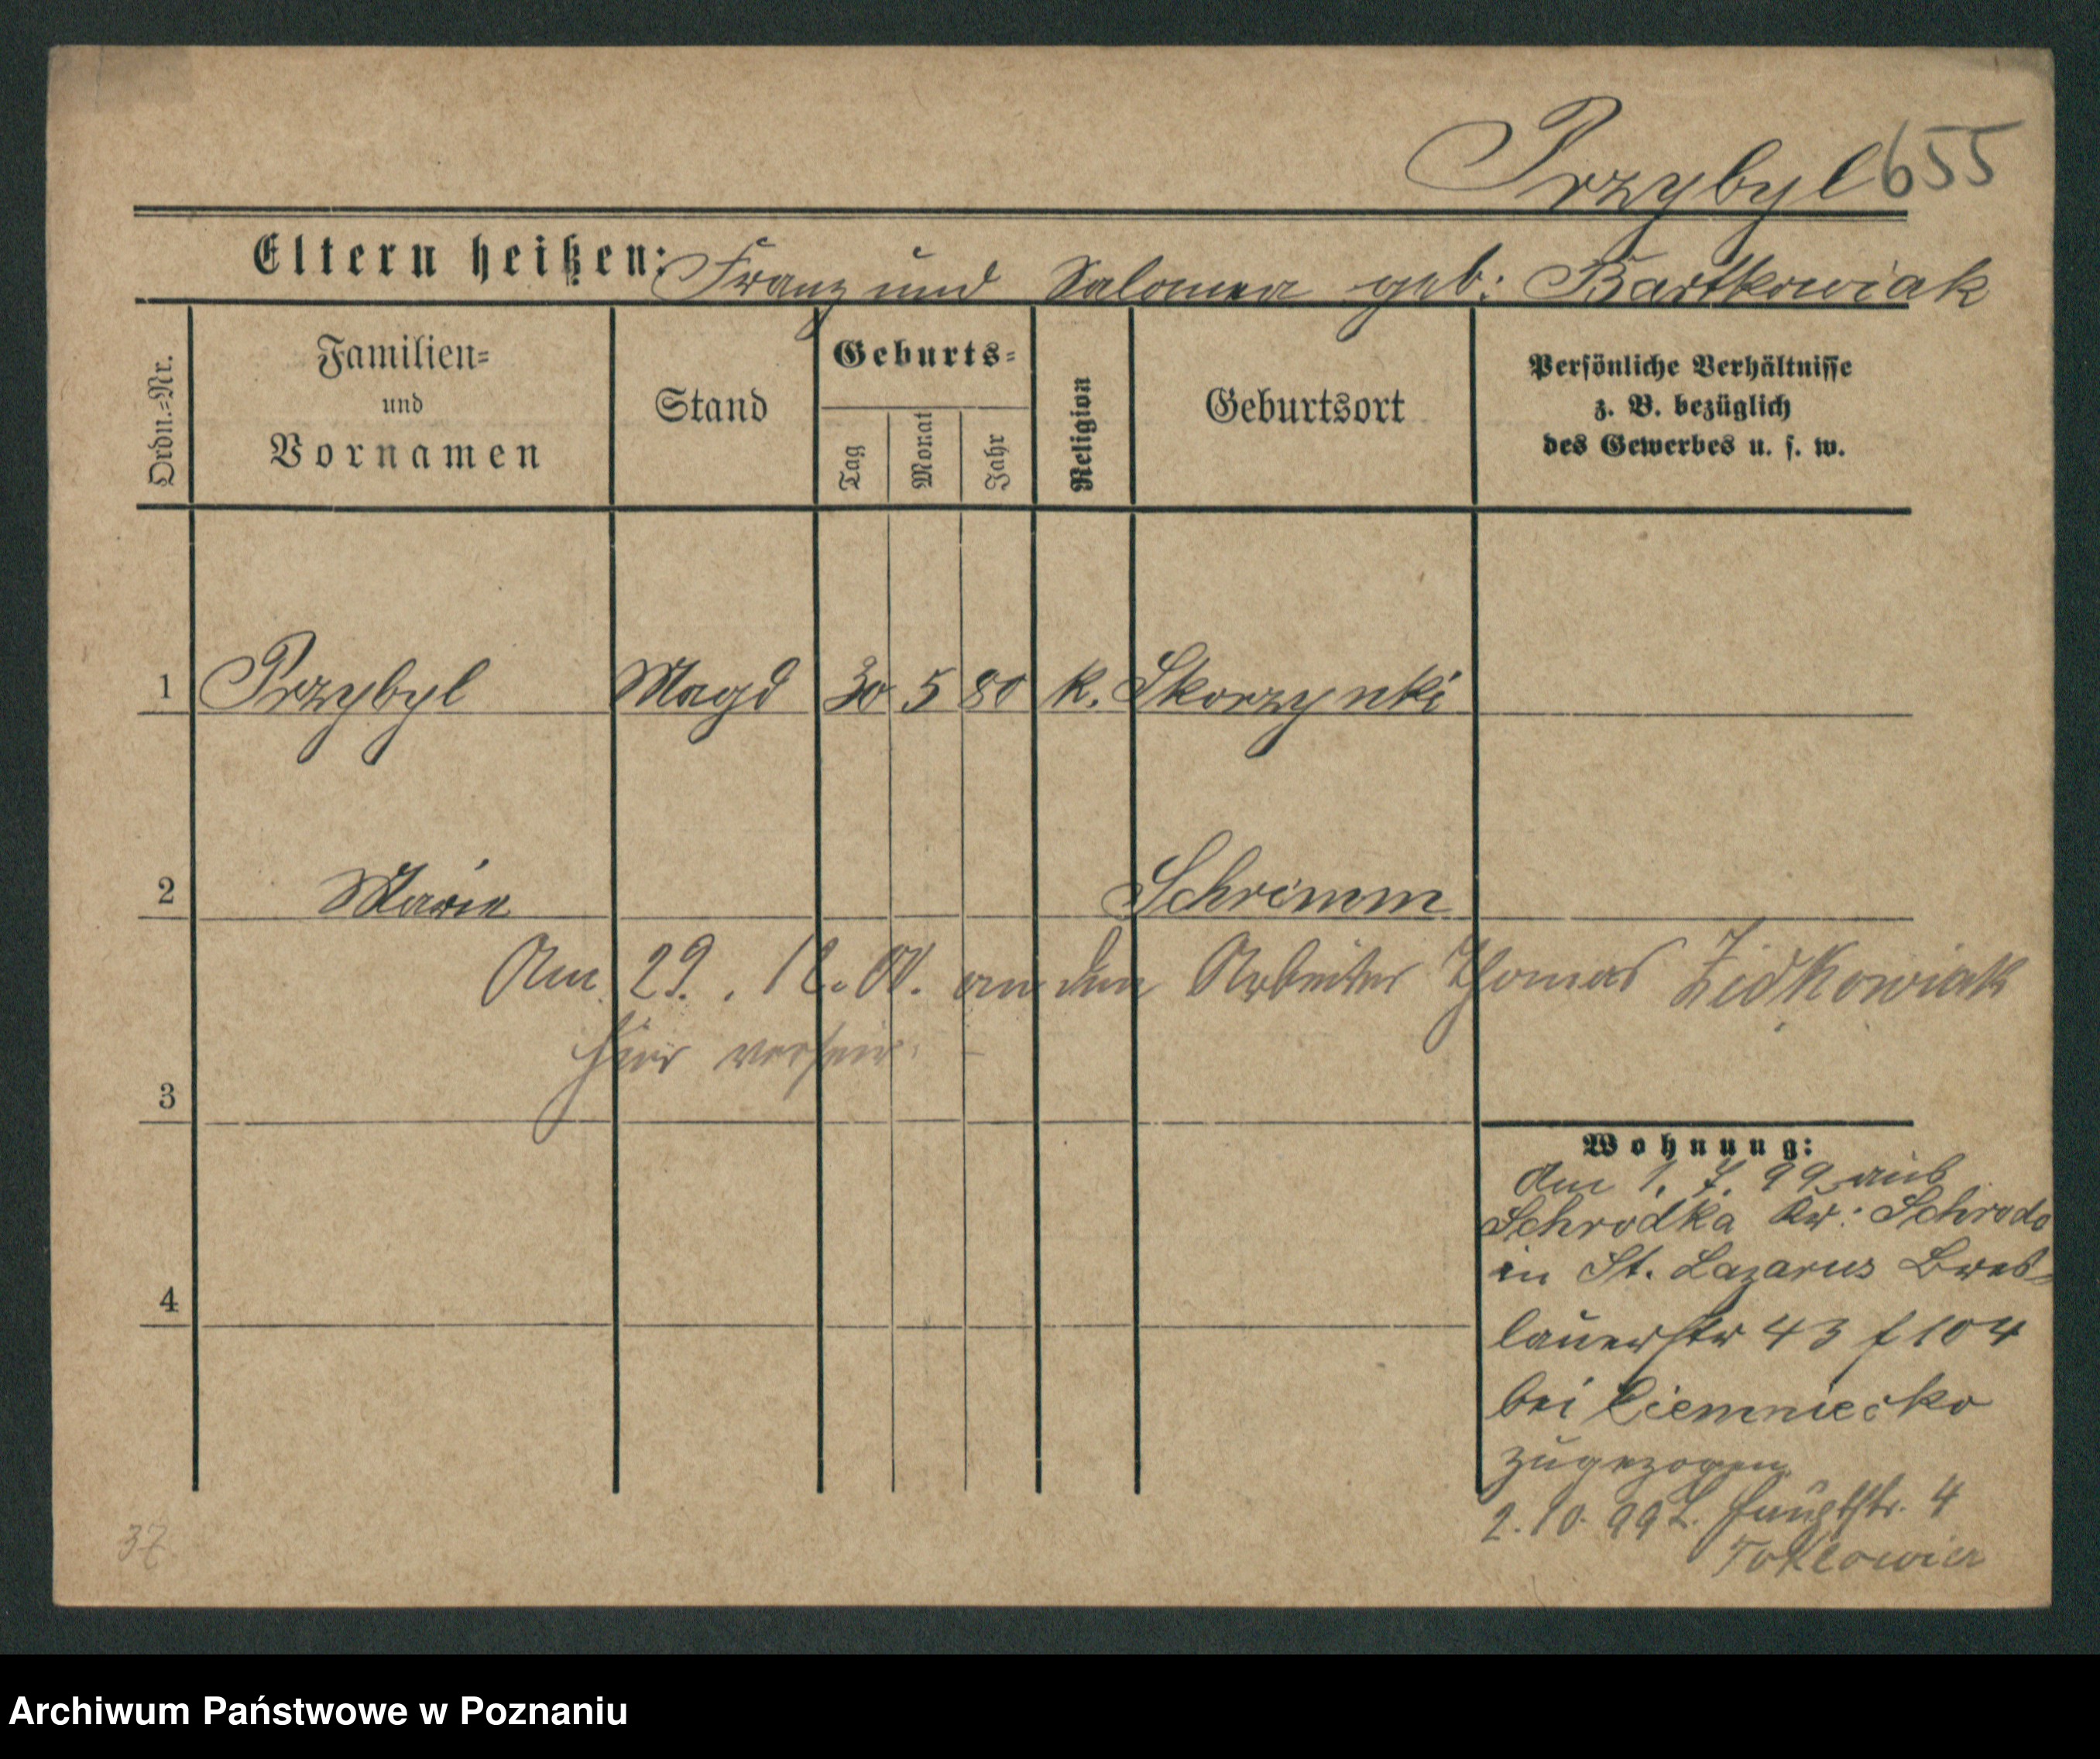 Przybyl 655
Eltern heißen: Franz und Salomea geb: Bartkowiak
Ordn.=Nr.
Familien=
und
Vornamen
Stand
Geburts=
Tag
Monat
Jahr
Religion
Geburtsort
Persönliche Verhältnisse
z. B. bezüglich
des Gewerbes u. s. w.
1 Przybyl Magd 30 5 80 k. Skorzynki
2 Marie Schrimm
Am 29. . 12. 00. an den Arbeiter Thomas Zidkowiak
hier verheir.
3
Wohnung:
Am 1. 7. 99 aus
Schrodka Kr: Schroda
in St. Lazarus Bres=
lauerstr 43 f 104
bei Ciemniecko
zugezogen
4
2. 10. 99 L. Hauptstr. 4
37
Archiwum Państwowe w Poznaniu